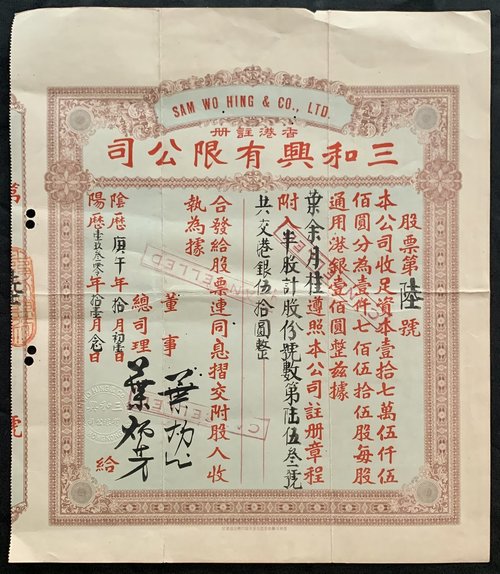 SAM WO HING & CO., LTD.
香港註冊
三和興有限公司
股票第陸號
本公司收足資本壹拾七萬伍仟伍
佰圓分為壹仟七佰伍拾伍股每股
通用港銀壹佰圓整茲據
葉余月桂遵照本公司註冊章程
附入半股計股份號數第陸伍叁一號
共交港銀伍拾圓整
合發給股票連同息摺交附股人收
執為據
董事 葉
總司理 葉炳芳
陰歷庚午年拾月初壹日
陽歷壹玖叁零年拾壹月念日
給
CANCELLED
CANCELLED
第
號